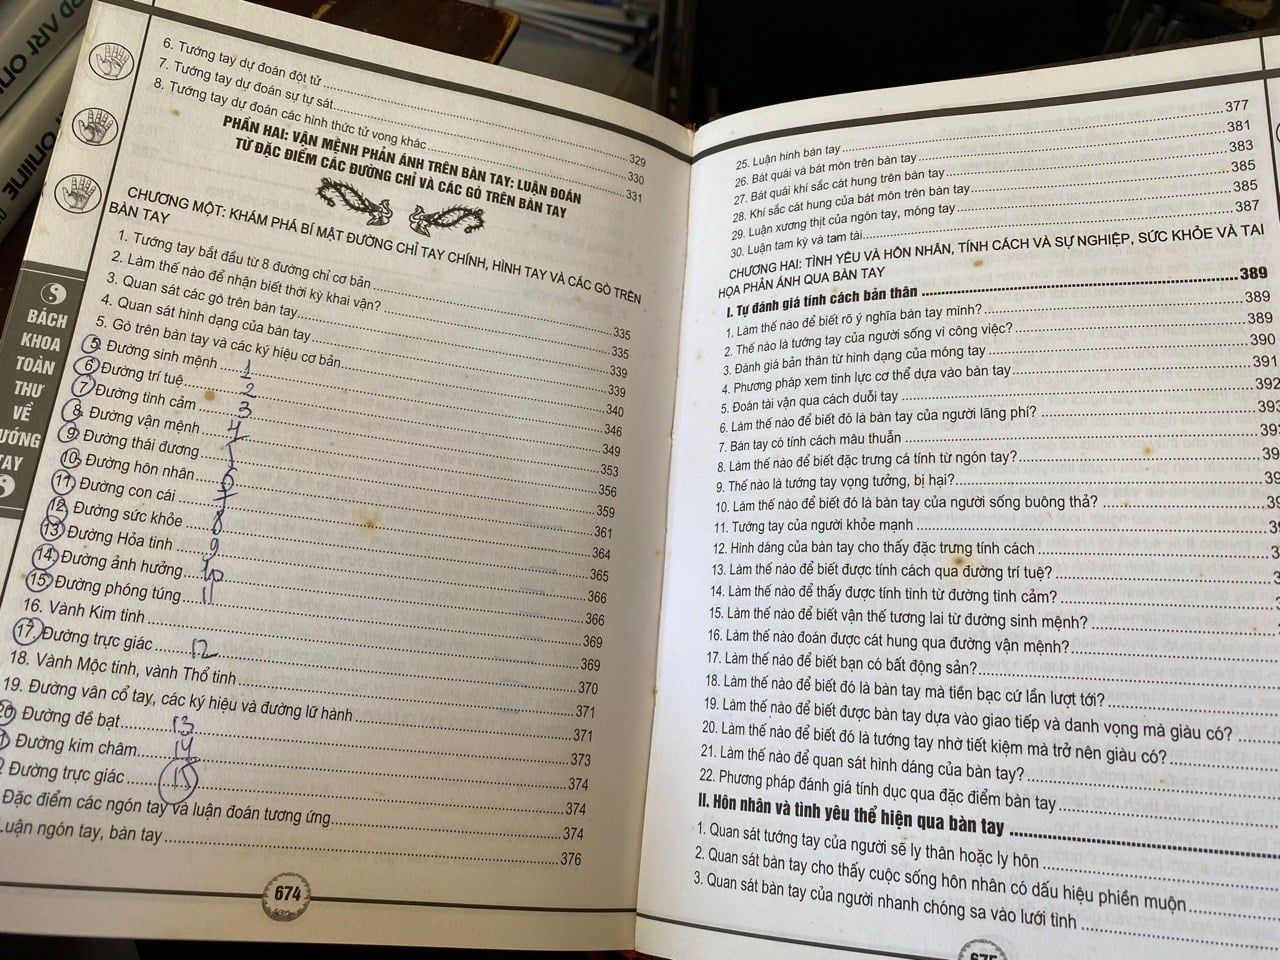 6. Tướng tay dự đoán đột tử ... 329
7. Tướng tay dự đoán sự tự sát ... 330
8. Tướng tay dự đoán các hình thức tử vong khác ... 331
PHẦN HAI: VẬN MỆNH PHẢN ÁNH TRÊN BÀN TAY: LUẬN ĐOÁN
TỪ ĐẶC ĐIỂM CÁC ĐƯỜNG CHỈ VÀ CÁC GÒ TRÊN BÀN TAY
CHƯƠNG MỘT: KHÁM PHÁ BÍ MẬT ĐƯỜNG CHỈ TAY CHÍNH, HÌNH TAY VÀ CÁC GÒ TRÊN
BÀN TAY
1. Tướng tay bắt đầu từ 8 đường chỉ cơ bản ... 335
2. Làm thế nào để nhận biết thời kỳ khai vận? ... 335
3. Quan sát các gò trên bàn tay ... 339
4. Quan sát hình dạng của bàn tay ... 339
5. Gò trên bàn tay và các ký hiệu cơ bản ... 340
5. Đường sinh mệnh 1 ... 346
6. Đường trí tuệ 2 ... 349
7. Đường tình cảm 3 ... 353
8. Đường vận mệnh 4 ... 356
9. Đường thái dương ... 359
10. Đường hôn nhân 6 ... 361
11. Đường con cái 7 ... 364
12. Đường sức khỏe 8 ... 365
13. Đường Hỏa tinh 9 ... 366
14. Đường ảnh hưởng 10 ... 366
15. Đường phóng túng 11 ... 369
16. Vành Kim tinh ... 369
17. Đường trực giác 12 ... 370
18. Vành Mộc tinh, vành Thổ tinh ... 371
19. Đường vân cổ tay, các ký hiệu và đường lữ hành ... 371
20. Đường đề bạt 13 ... 373
Đường kim châm 14 ... 374
Đường trực giác 15 ... 374
Đặc điểm các ngón tay và luận đoán tương ứng ... 374
Luận ngón tay, bàn tay ... 376
674
BÁCH
KHOA
TOÀN
THƯ
VỀ
ƯỚNG
TAY
25. Luận hình bàn tay ... 377
26. Bát quái và bát môn trên bàn tay ... 381
27. Bát quái khí sắc cát hung trên bàn tay ... 383
28. Khí sắc cát hung của bát môn trên bàn tay ... 385
29. Luận xương thịt của ngón tay, móng tay ... 385
30. Luận tam kỳ và tam tài ... 387
CHƯƠNG HAI: TÌNH YÊU VÀ HÔN NHÂN, TÍNH CÁCH VÀ SỰ NGHIỆP, SỨC KHỎE VÀ TAI
HỌA PHẢN ÁNH QUA BÀN TAY
I. Tự đánh giá tính cách bản thân ... 389
1. Làm thế nào để biết rõ ý nghĩa bàn tay mình? ... 389
2. Thế nào là tướng tay của người sống vì công việc? ... 389
3. Đánh giá bản thân từ hình dạng của móng tay ... 390
4. Phương pháp xem tinh lực cơ thể dựa vào bàn tay ... 391
5. Đoán tài vận qua cách duỗi tay ... 392
6. Làm thế nào để biết đó là bàn tay của người lãng phí? ... 393
7. Bàn tay có tính cách mâu thuẫn ... 39
8. Làm thế nào để biết đặc trưng cá tính từ ngón tay? ... 39
9. Thế nào là tướng tay vọng tưởng, bị hại? ... 39
10. Làm thế nào để biết đó là bàn tay của người sống buông thả? ... 39
11. Tướng tay của người khỏe mạnh ... 3
12. Hình dáng của bàn tay cho thấy đặc trưng tính cách ... 3
13. Làm thế nào để biết được tính cách qua đường trí tuệ?
14. Làm thế nào để thấy được tính tình từ đường tình cảm?
15. Làm thế nào để biết vận thế tương lai từ đường sinh mệnh?
16. Làm thế nào đoán được cát hung qua đường vận mệnh?
17. Làm thế nào để biết bạn có bất động sản?
18. Làm thế nào để biết đó là bàn tay mà tiền bạc cứ lần lượt tới?
19. Làm thế nào để biết được bàn tay dựa vào giao tiếp và danh vọng mà giàu có?
20. Làm thế nào để biết đó là tướng tay nhờ tiết kiệm mà trở nên giàu có?
21. Làm thế nào để quan sát hình dáng của bàn tay?
22. Phương pháp đánh giá tình dục qua đặc điểm bàn tay
II. Hôn nhân và tình yêu thể hiện qua bàn tay
1. Quan sát tướng tay của người sẽ ly thân hoặc ly hôn
2. Quan sát bàn tay cho thấy cuộc sống hôn nhân có dấu hiệu phiền muộn
3. Quan sát bàn tay của người nhanh chóng sa vào lưới tình
675